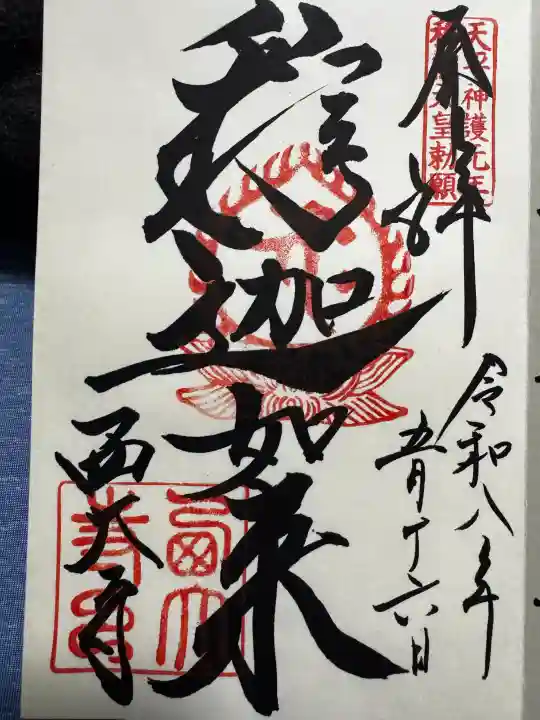 奉拝
天平神護元年
称徳天皇勅願
令和八年
五月十六日
釋迦如来
西大寺